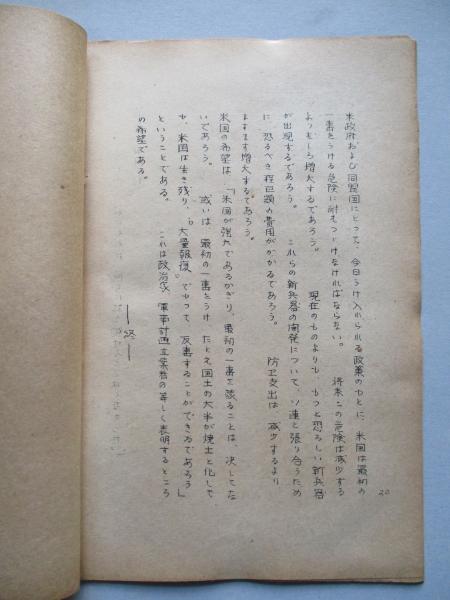 米政府および同盟国にとって、今日うけ入れられる政策のもとに、米国は最初の
一撃をうける危険に耐えつづけなければならない。　将来この危険は減少する
よりもむしろ増大するであろう。　現在のものよりも、もっと恐ろしい新兵器
が出現するであろう。　これらの新兵器の開発について、ソ連と張り合うため
に、恐るべき程巨額の費用がかかるであろう。　防卫支出は、減少するより
ますます増大するであろう。
米国の希望は、「米国が強大であるかぎり、最初の一撃を蒙ることは、決してな
いであろう。　或いは、最初の一撃をうけ、たとえ国土の大半が焼土と化して
も、米国は生き残り、"大量報復"でもって、反撃することができるであろう」
ということである。　これは政治家、軍事計画立案者の等しく表明するところ
の希望である。
—終—
20